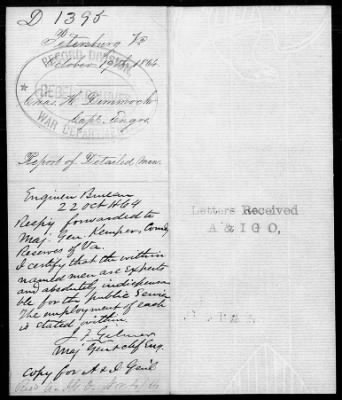 D 1395
Petersburg Va
October 19th 1864
RECORD DIVISION
REBEL ARCHIVES
WAR DEPARTMENT
Chas. H. Dimmock
Capt. Engrs.
Report of Detailed men.
Engineer Bureau
22 Oct 1864
Respy forwarded to
Maj. Gen. Kemper, Comg
Reserves of Va.
I certify that the within
named men are experts
and absolutely indispensa
ble for the public Service
The employment of each
is stated within.
J. F. Gilmer
Maj Genl & chf Eng.
copy for A & I Genl
Letters Received
A & I G O,